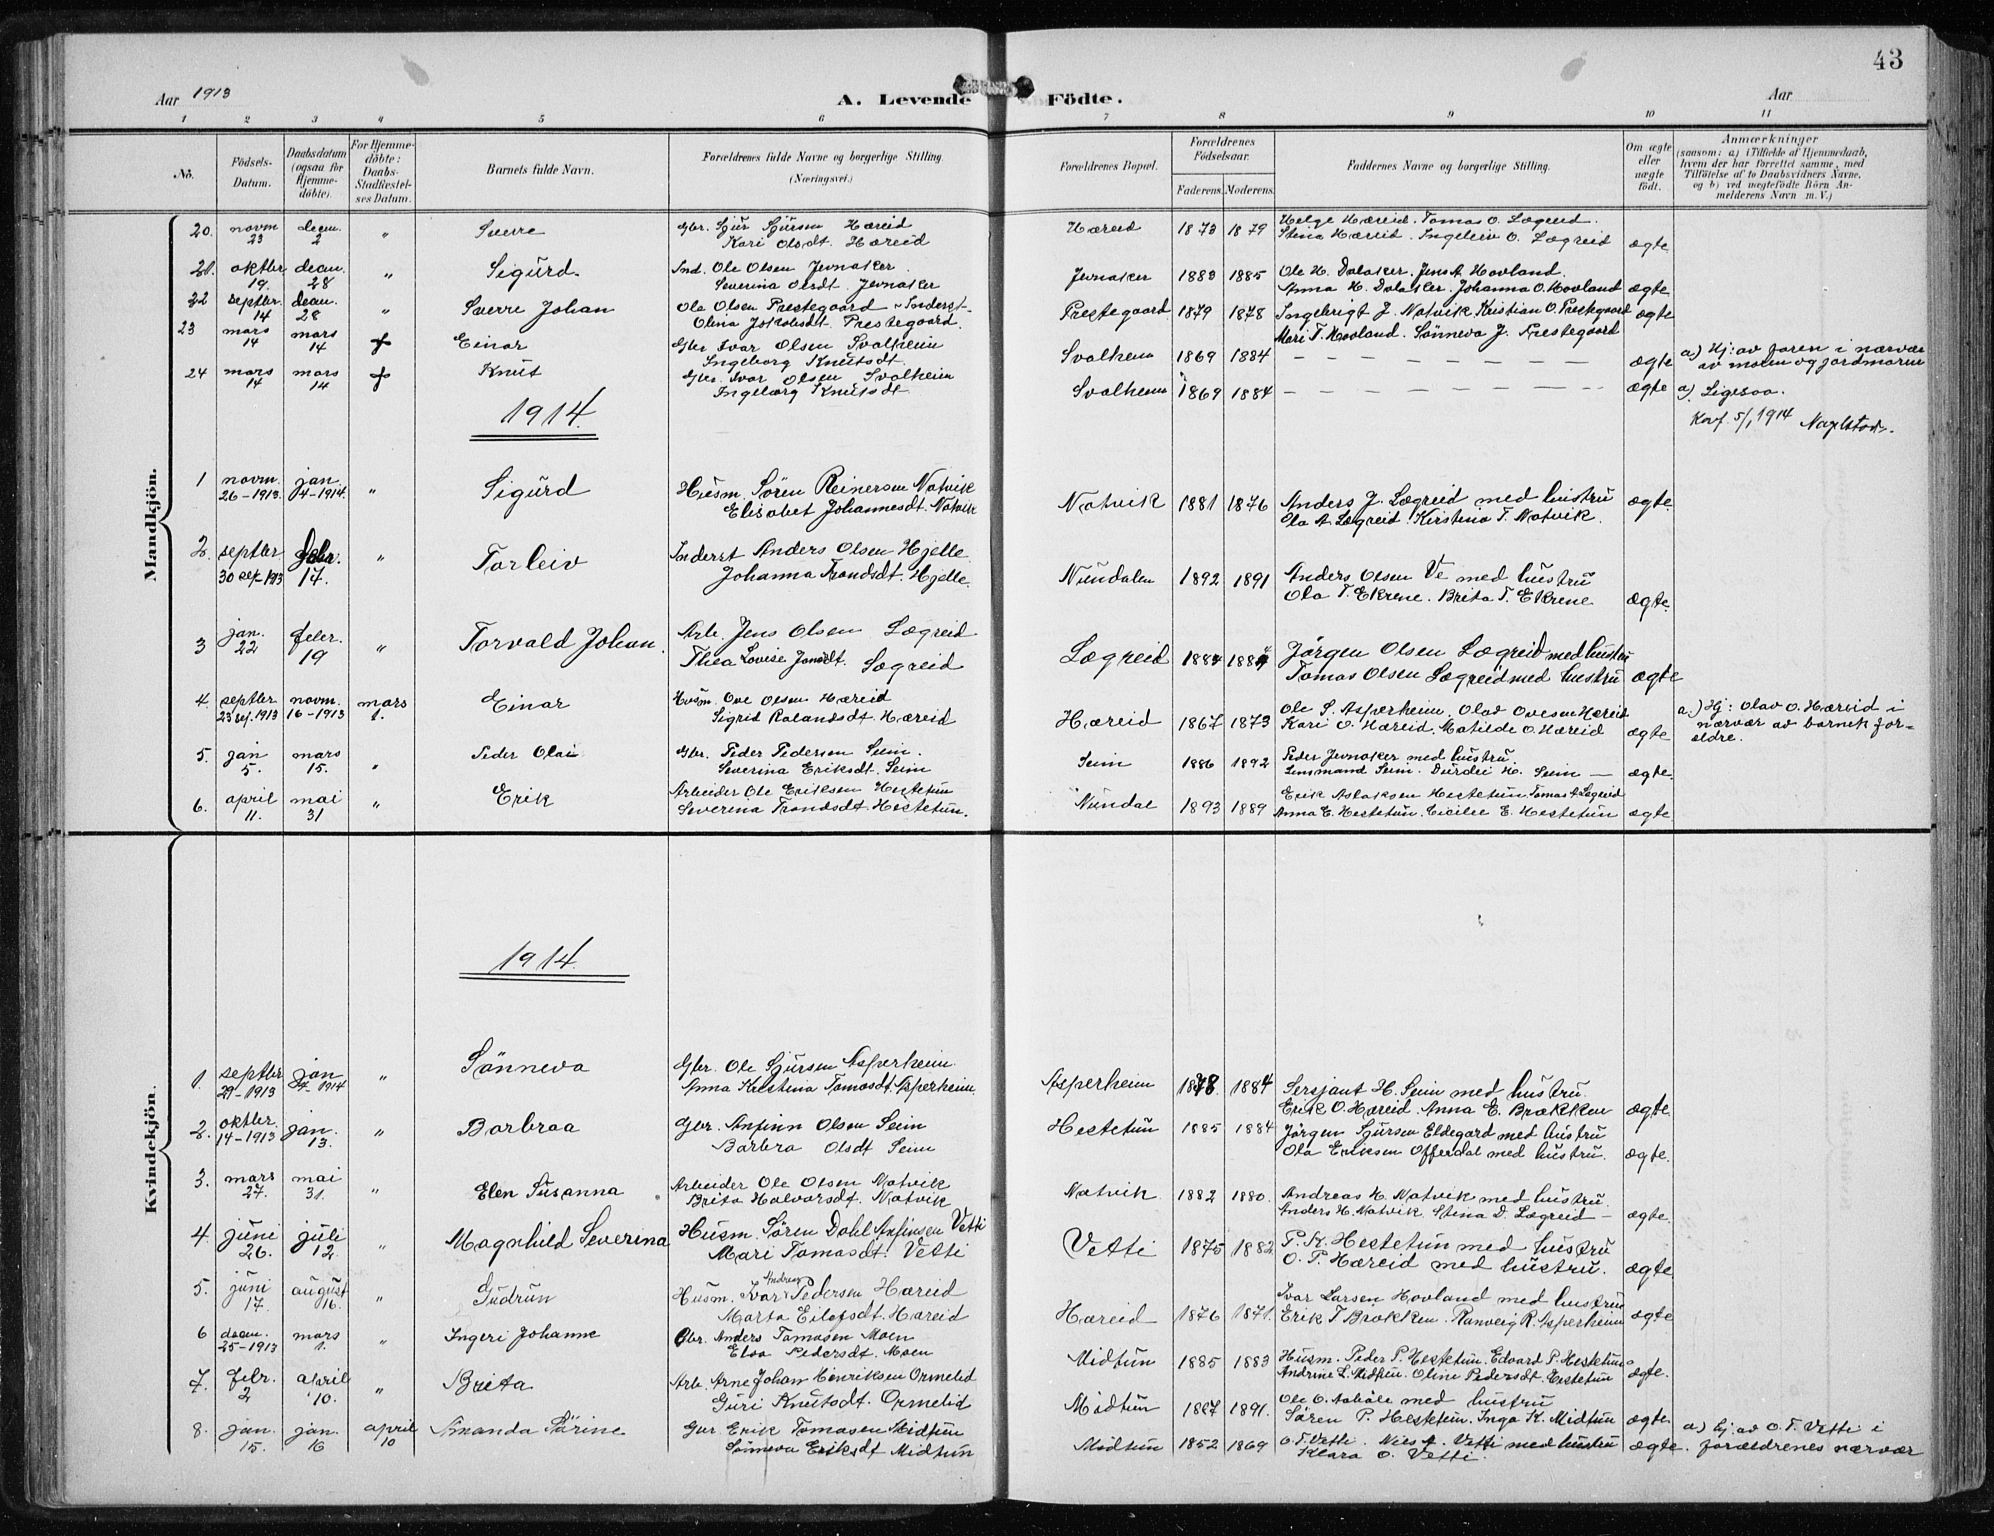 43
Aar 1913
A. Levende Födte.
Aar
1 2 3 4 5 6 7 8 9 10 11
No.
Födsels-Datum.
Daabsdatum (ogsaa for Hjemmedöbte).
For Hjemmedöbte: Daabs-Stadfæstelses Datum.
Barnets fulde Navn.
Forældrenes fulde Navne og borgerlige Stilling (Næringsvei.)
Forældrenes Bopæl.
Forældrenes Födselsaar.
Faderens. Moderens.
Faddernes Navne og borgerlige Stilling.
Om ægte eller uægte födt.
Anmærkninger
(saasom: a) i Tilfælde af Hjemmedaab,
hvem der har forrettet samme, med
Tilföielse af to Daabsvidners Navne,
og b) ved uægtefödte Börn Anmelderens Navn m. V.)
Mandkjön.
20. novm 23 decm. 2 " Sverre Gbr. Sjur Sjursen Hæreid Hæreid 1873 1879 Helge Hæreid. Tomas O. Lægreid.
Kari Olsdt. Hæreid Stina Hæreid. Ingeleiv O. Lægreid ægte
21. oktbr 19. decm. 28 " Sigurd. Ind. Ole Olsen Jevnaker Jevnaker 1883 1885 Ole H. Dalaker. Jens A. Hovland.
Severina Olsdt. Jevnaker Anna H. Dalaker. Johanna O. Hovland ægte
22 septbr. 14 decm. 28 " Sverre Johan Ola Olsen Prestegaard - Inderst- Prestegaard 1879 1878 Ingebrigt J. Natvik Kristian O. Prestegaard ægte
Olina Jakobsdt Prestegaard. Mari T. Hovland. Sönneva J. Prestegaard
23 mars 14 mars 14 + Einar Gbr Ivar Olsen Svalheim Svalheim 1869 1884 — — — ægte a) Hj: av faren i nærvær
Ingeborg Knutsdt. av moren og jordmoren
24 mars 14 mars 14 + Knut Gbr. Ivar Olsen Svalheim Svalheim 1869 1884 — — — ægte a). Ligesaa.
Ingeborg Knutsdt.
1914.
Konf. 5/1 1914
1 novm. 26-1913. jan. 4-1914. " Sigurd Husm. Sören Reinersen Natvik Natvik 1881 1876 Anders J. Lægreid med hustru ægte.
Elisabet Johannesdt. Natvik Ola A. Lægreid. Kirstina T. Natvik.
2. septbr 30 sep-1913 febr. 14. " Torleiv Inderst Anders Olsen Hjelle Nundalen 1892 1891 Anders Olsen Ve med hustru
Johanna Trondsdt. Hjelle. Ola T. Ekrene. Brita T. Ekrene ægte.
3 jan. 22 febr. 19 " Torvald Johan. Arb. Jens Olsen Lægreid Lægreid 1884 1884 Jörgen Olsen Lægreid med hustru
Thea Lovise Jonsdt. Lægreid Tomas Olsen Lægreid med hustru ægte
4. septbr 23 sep. 1913 novm. 16-1913 mars 1. Einar Husm. Ove Olsen Hæreid Hæreid 1867 1873 Ole S. Asperheim. Olav Ovesen Hæreid a.) Hj: Olav O. Hæreid i
Sigrid Rolandsdt. Hæreid Kari O. Hæreid. Matilde O. Hæreid ægte nærvær av barnets foreldre.
5. jan 5. mars 15. " Peder Olai Gbr. Peder Pedersen Seim. Seim 1886 1892 Peder Jevnaker med hustru.
Severina Eriksdt. Seim Lensmand Seim. Durdei H. Seim — ægte.
6. april 11. mai 31 " Erik Arbeider Ole Eriksen Hestetun Nundal 1893 1889 Erik Aslaksen Hestetun. Tomas A Lægreid
Severina Trondsdt Hestetun. Anna E. Hestetun. Cicilie E. Hestetun ægte.
Kvindekjön.
1914.
1. septbr 29-1913 jan 4-1914 " Sönneva Gbr. Ole Sjursen Asperheim. Asperheim 1878 1884 Sersjant H. Seim med hustru.
Anna Kristina Tomasdt. Asperheim. Erik O. Hæreid. Anna E. Brækken ægte.
2. oktbr. 14-1913 jan. 13. " Barbraa Gbr. Anfinn Olsen Seim Hestetun 1885 1884 Jörgen Sjursen Eldegard med hustru
Barbra Olsdt Seim Ola Eriksen Offerdal med hustru. ægte.
3. mars 27. mai 31. " Elen Susanna Arbeider Ole Olsen Natvik Natvik 1882 1880. Andreas H. Natvik med hustru.
Brita Halvorsdt. Natvik Anders H. Natvik Stina D. Lægreid — ægte.
4. juni 26. juli 12. " Magnhild Severina Husm. Sören Dahl Anfinsen Vetti Vetti 1875 1882 P. K. Hestetun med hustru
Mari Tomasdt. Vetti O. P. Hæreid med hustru. ægte
5. juni 17. august 16. " Gudrun Husm. Ivar Andreas Pedersen Hæreid Hæreid 1876 1871. Ivar Larsen Hovland med hustru
Marta Eilefsdt. Hæreid Erik T. Brækken. Ranveig R. Asperheim ægte
6 decm. 25-1913 mars 1. " Ingeri Johanne Gbr. Anders Tomasen Moen Midtun 1885 1883 Husm. Peder P. Hestetun. Edvard P. Hestetun
Elsa Pedersdt. Moen Andrine L. Midtun. Oline Pedersdt. Hestetun ægte.
7. febr. 2 april 10. " Brita Arb. Arne Johan Henriksen Ormelid Midtun 1887 1891. Ole O. Aahole med hustru
Guri Knutsdt. Ormelid Sören P. Hestetun. Inga K. Midtun ægte.
8. jan. 15. jan. 16 april 10 Amanda Sörine Gbr. Erik Tomasen Midtun Midtun 1852 1869 O. T. Vetti. Niels A. Vetti med hustru ægte. a) hj: av O. T. Vetti i
Sönneva Eriksdt Midtun Klara O. Vetti. forældrenes nærvær